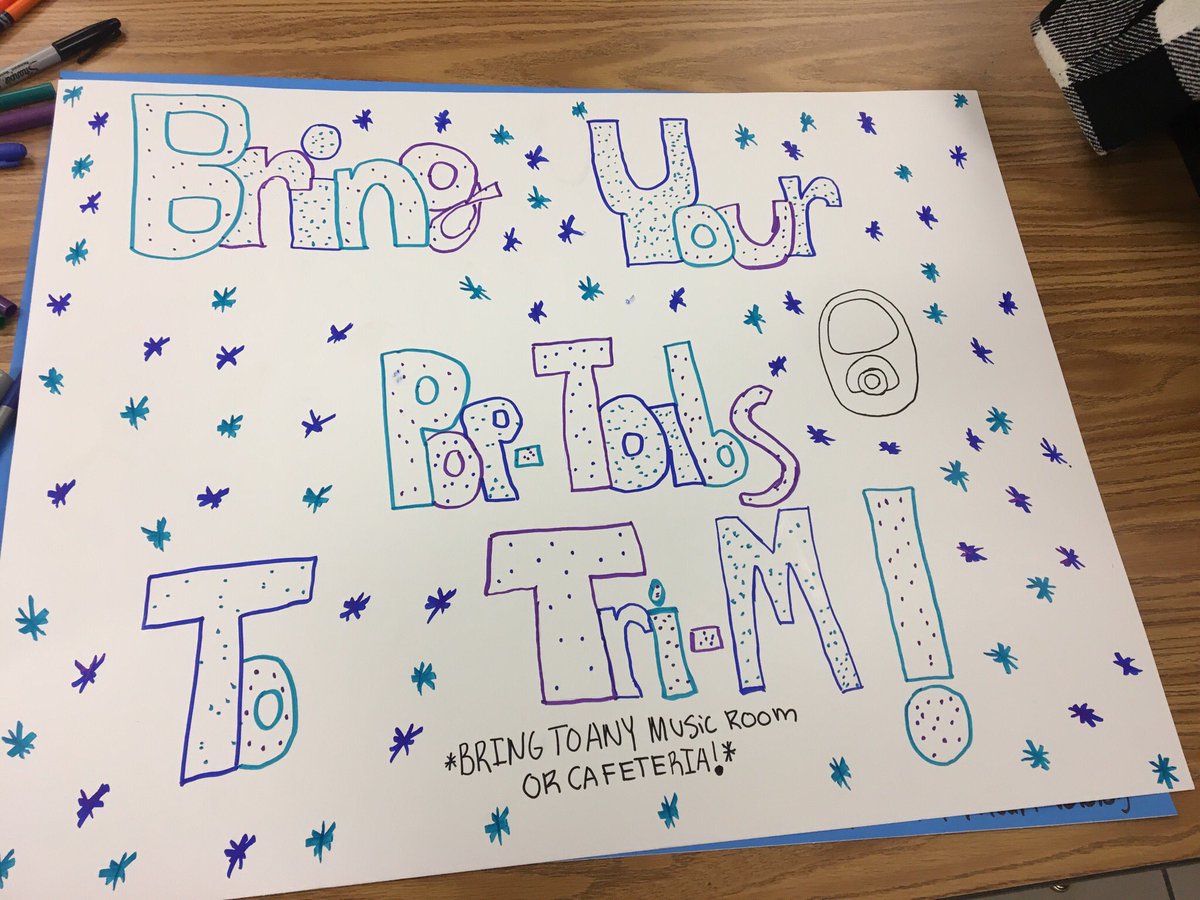 Bring Your
Pop-Tabs
To Tri-M!
*BRING TO ANY MUSIC ROOM
OR CAFETERIA!*
Sharpie